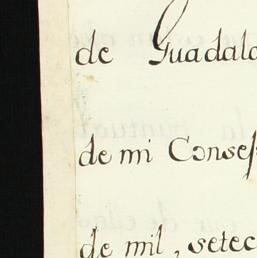 de Guadala
de mi Consej
de mil, setec